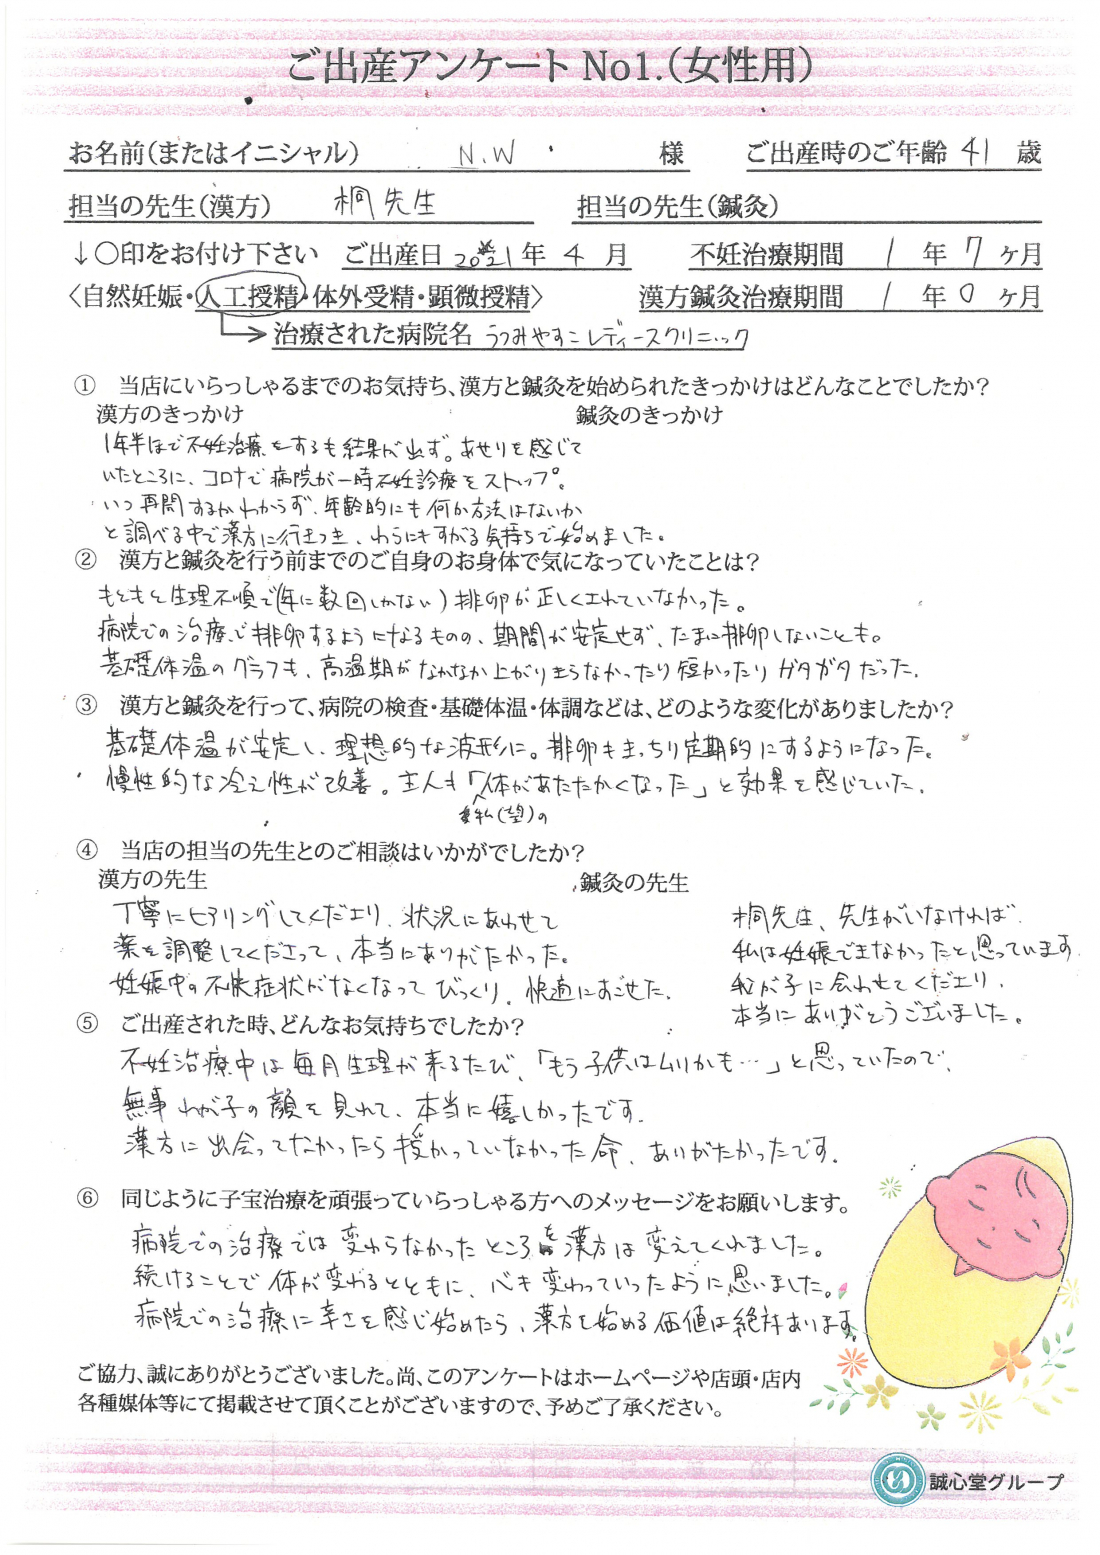 ご出産アンケート No1.(女性用)
お名前(またはイニシャル) N.W 様 ご出産時のご年齢 41 歳
担当の先生(漢方) 桐先生 担当の先生(鍼灸)
↓○印をお付け下さい ご出産日 2021年 4 月 不妊治療期間 1 年 7 ヶ月
〈自然妊娠・人工授精・体外受精・顕微授精〉 漢方鍼灸治療期間 1 年 0 ヶ月
治療された病院名 うつみやすこレディースクリニック
① 当店にいらっしゃるまでのお気持ち、漢方と鍼灸を始められたきっかけはどんなことでしたか?
漢方のきっかけ 鍼灸のきっかけ
1年半ほど不妊治療をするも結果が出ず。あせりを感じて
いたところに、コロナで病院が一時不妊診療をストップ。
いつ再開するかわからず、年齢的にも何か方法はないか
と調べる中で漢方に行きつき、わらにもすがる気持ちで始めました。
② 漢方と鍼灸を行う前までのご自身のお身体で気になっていたことは?
もともと生理不順で(年に数回しかない)排卵が正しくされていなかった。
病院での治療で排卵するようになるものの、期間が安定せず、たまに排卵しないことも。
基礎体温のグラフも、高温期がなかなか上がりきらなかったり短かったりガタガタだった。
③ 漢方と鍼灸を行って、病院の検査・基礎体温・体調などは、どのような変化がありましたか?
基礎体温が安定し、理想的な波形に。排卵もきっちり定期的にするようになった。
慢性的な冷え性が改善。主人も「体があたたかくなった」と効果を感じていた。
私(望)の
④ 当店の担当の先生とのご相談はいかがでしたか?
漢方の先生 鍼灸の先生
丁寧にヒアリングしてくださり、状況にあわせて
薬を調整してくださって、本当にありがたかった。
妊娠中の不快症状がなくなってびっくり。快適にすごせた。
桐先生、先生がいなければ
私は妊娠できなかったと思っています。
我が子に会わせてくださり、
本当にありがとうございました。
⑤ ご出産された時、どんなお気持ちでしたか?
不妊治療中は毎月生理が来るたび、「もう子供はムリかも…」と思っていたので、
無事わが子の顔を見れて、本当に嬉しかったです。
漢方に出会ってなかったら授かっていなかった命、ありがたかったです。
⑥ 同じように子宝治療を頑張っていらっしゃる方へのメッセージをお願いします。
病院での治療では変わらなかったところを漢方は変えてくれました。
続けることで体が変わるとともに、心も変わっていったように思いました。
病院での治療に辛さを感じ始めたら、漢方を始める価値は絶対あります。
ご協力、誠にありがとうございました。尚、このアンケートはホームページや店頭・店内
各種媒体等にて掲載させて頂くことがございますので、予めご了承ください。
誠心堂グループ